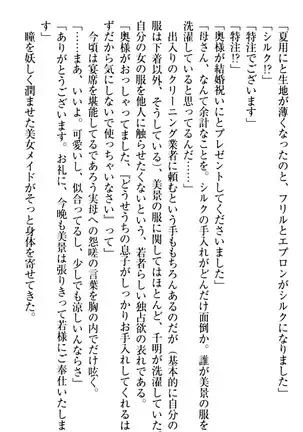 「夏用にと生地が薄くなったのと、フリルとエプロンがシルクになりました」
「シルク!?」
「特注でございます」
「特注!?」
「奥様が結婚祝いにとプレゼントしてくださいました」
「母さん、なんて余計なことを。シルクの手入れがどんだけ面倒か。誰が美景の服を
洗濯していると思ってるんだ……」
　出入りのクリーニング業者に頼むという手ももちろんあるのだが（基本的に自分の
服は以前、そうしている）、美景の服に関してはほとんど、千明が洗濯していた。
自分の女の服を他人に触らせたくないという、若者らしい独占欲の表れである。
「奥様がおっしゃってました、『どうせうちの息子がしっかりお手入れしてくれるは
ずだから気にしないで使っちゃいなさい』って」
　今頃は宴席を堪能してるであろう実母への怨嗟の言葉を胸の内だけで呟く。
「……まあ、いいよ。可愛いし、似合ってるし、少しでも涼しいんならさ」
「ありがとうございます。お礼に、今晩も美景は張りきって若様にご奉仕いたします」
　瞳を妖しく潤ませた美女メイドがそっと身体を寄せてきた。